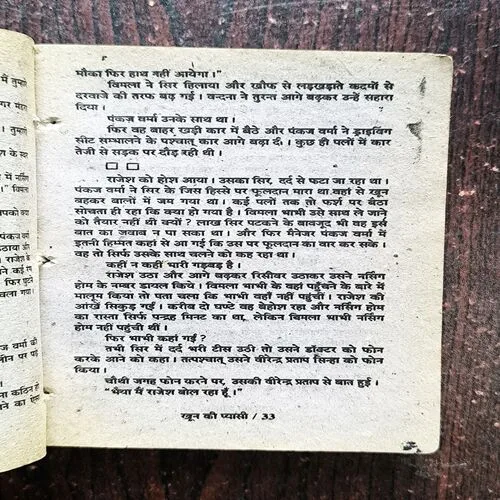 मौका फिर हाथ नहीं आयेगा।"
विमला ने सिर हिलाया और खौफ से लड़खड़ाते कदमों से
दरवाजे की तरफ बढ़ गई। वन्दना ने तुरन्त आगे बढ़कर उन्हें सहारा
दिया।
पंकज वर्मा उनके साथ था।
फिर वह बाहर खड़ी कार में बैठे और पंकज वर्मा ने ड्राइविंग
सीट सम्भालने के पश्चात् कार आगे बढ़ा दी। कुछ ही पलों में कार
तेजी से सड़क पर दौड़ रही थी।
राजेश को होश आया। उसका सिर, दर्द से फटा जा रहा था।
पंकज वर्मा ने सिर के जिस हिस्से पर फूलदान मारा था वहां से खून
बहकर बालों में जम गया था। कई पलों तक तो फर्श पर बैठा
सोचता ही रहा कि क्या हो गया है। विमला भाभी उसे साथ ले जाने
को तैयार नहीं थी क्यों? लाख सिर पटकने के बावजूद भी वह इस
बात का जवाब न पा सका था। और फिर मैनेजर पंकज वर्मा में
इतनी हिम्मत कहां से आ गई कि उस पर फूलदान का वार कर सके।
वह तो सिर्फ उसके साथ चलने को कह रहा था।
कहीं न कहीं भारी गड़बड़ है।
राजेश उठा और आगे बढ़कर रिसीवर उठाकर उसने नर्सिंग
होम के नम्बर डायल किये। विमला भाभी के वहां पहुँचने के बारे में
मालूम किया तो पता चला कि भाभी वहाँ नहीं पहुंचीं। राजेश की
आंखें सिकुड़ गईं। करीब दो घण्टे वह बेहोश रहा और नर्सिंग होम
का रास्ता सिर्फ पन्द्रह मिनट का था, लेकिन विमला भाभी नर्सिंग
होम नहीं पहुंची थीं।
फिर भाभी कहां गईं?
तभी सिर में दर्द भरी टीस उठी तो उसने डॉक्टर को फोन
करके आने को कहा। तत्पश्चात् उसने वीरेन्द्र प्रताप सिन्हा को फोन
किया।
चौथी जगह फोन करने पर, उसकी वीरेन्द्र प्रताप से बात हुई।
"भैया मैं राजेश बोल रहा हूँ।"
खून की प्यासी / 33